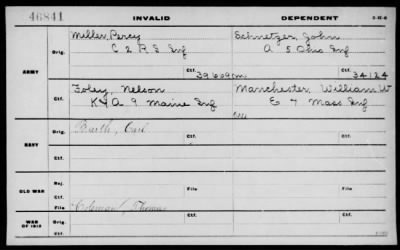 46841 INVALID DEPENDENT
Miller, Percy Schnetzer, John
Orig. C 2 R S Inf A 5 Ohio Inf
ARMY Ctf. 39669 Ctf. 34124
Foley, Nelson Manchester, William W
Ctf. K & A 9 Maine Inf E 7 Mass Inf
Barth, Carl
Orig. Orig.
NAVY Ctf. Ctf.
Ctf.
Rej.
OLD WAR File File
Ctf.
Coleman, Thomas
WAR OF 1812 Orig. Ctf. Ctf.